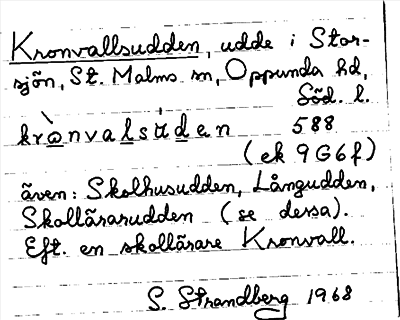 Kronvallsudden, udde i Stor-
sjön, St. Malms sn, Oppunda hd,
Söd. l.
krònvalsúden 588
(ek 9G6f)
även: Skolhusudden, Långudden,
Skollärarudden (se dessa).
Eft. en skollärare Kronvall.
S. Strandberg 1968